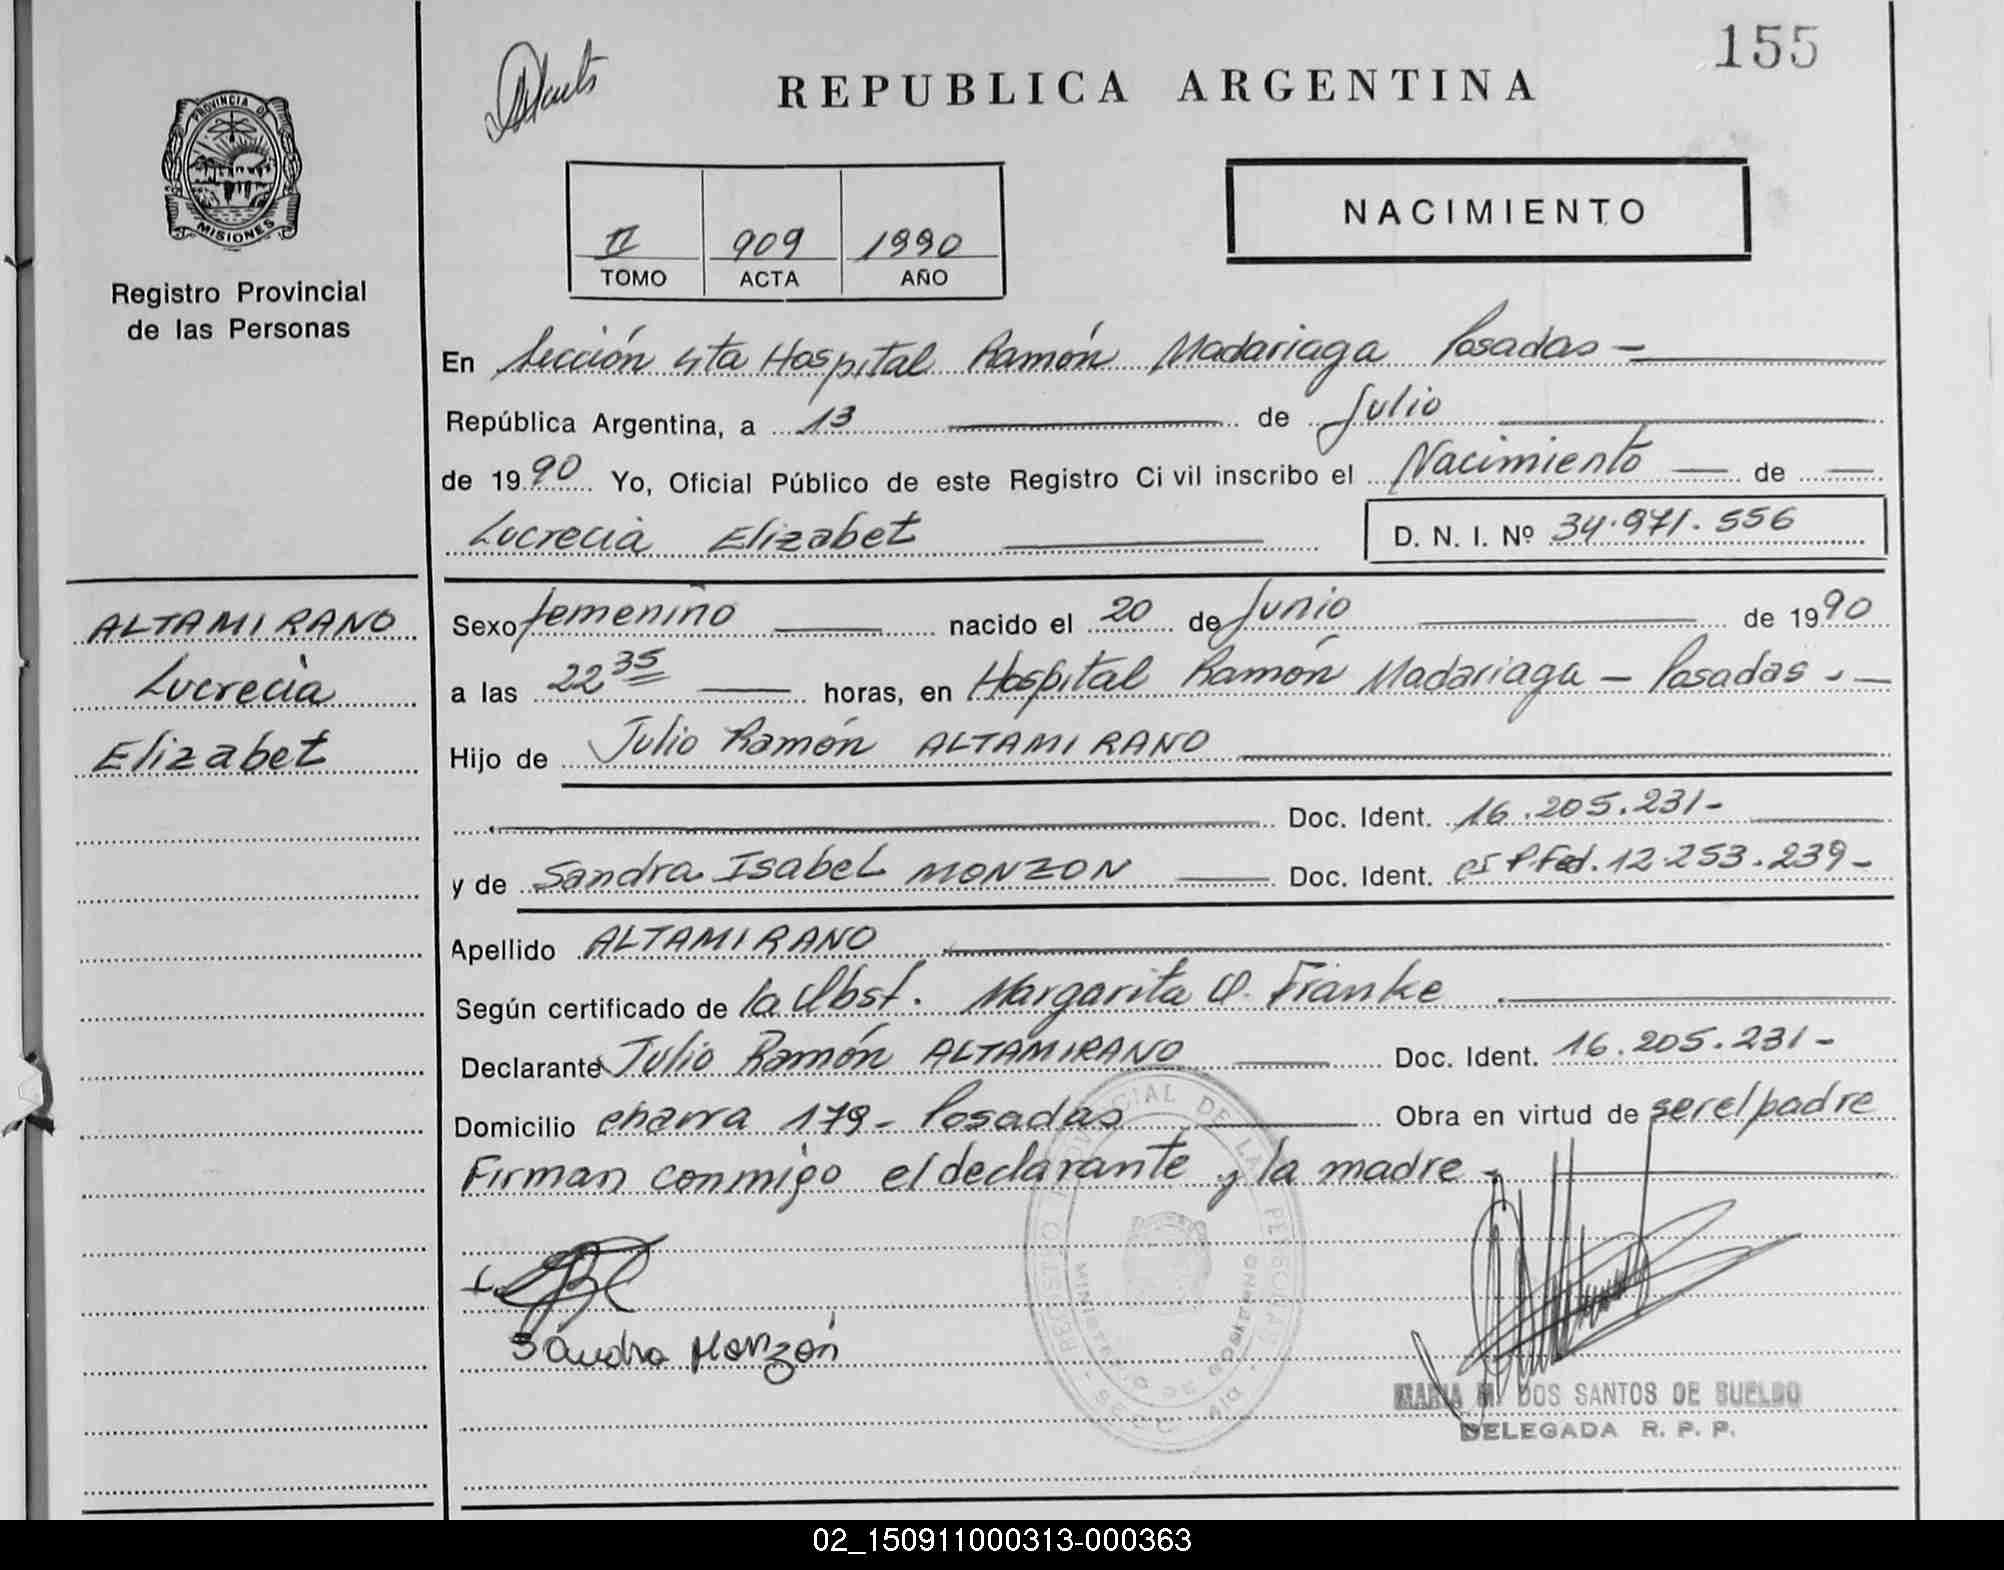 155
REPUBLICA ARGENTINA
PROVINCIA DE
MISIONES
Registro Provincial
de las Personas
NACIMIENTO
II 909 1990
TOMO ACTA AÑO
En Sección 4ta Hospital Ramón Madariaga Posadas -
República Argentina, a 13 de Julio
de 1990 Yo, Oficial Público de este Registro Civil inscribo el Nacimiento de
Lucrecia Elizabet D. N. I. Nº 34.971.556
ALTAMIRANO
Lucrecia
Elizabet
Sexo femenino nacido el 20 de Junio de 1990
a las 22 35 horas, en Hospital Ramón Madariaga - Posadas. -
Hijo de Julio Ramón ALTAMIRANO
Doc. Ident. 16.205.231-
y de Sandra Isabel MONZON Doc. Ident. CI P.Fed. 12.253.239-
Apellido ALTAMIRANO
Según certificado de la Obst. Margarita O. Franke
Declarante Julio Ramón ALTAMIRANO Doc. Ident. 16.205.231-
Domicilio charra 179- Posadas Obra en virtud de ser el padre
Firman conmigo el declarante y la madre -
REGISTRO PROVINCIAL DE LAS PERSONAS
MINISTERIO DE GOBIERNO
Sandra Monzón
MARIA M. DOS SANTOS DE SUELDO
DELEGADA R. P. P.
02_150911000313-000363